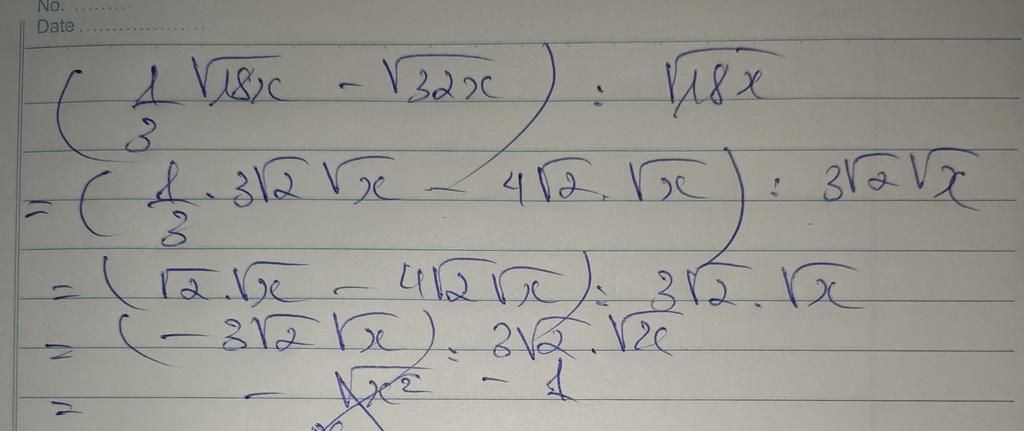 No. .........
Date ..................
( 1/3 √18x - √32x ) : √18x
= ( 1/3 . 3√2 √x - 4√2 . √x ) : 3√2 √x
= ( √2 . √x - 4√2 √x ) : 3√2 . √x
= ( - 3√2 √x ) : 3√2 . √x
= - √x² - 1